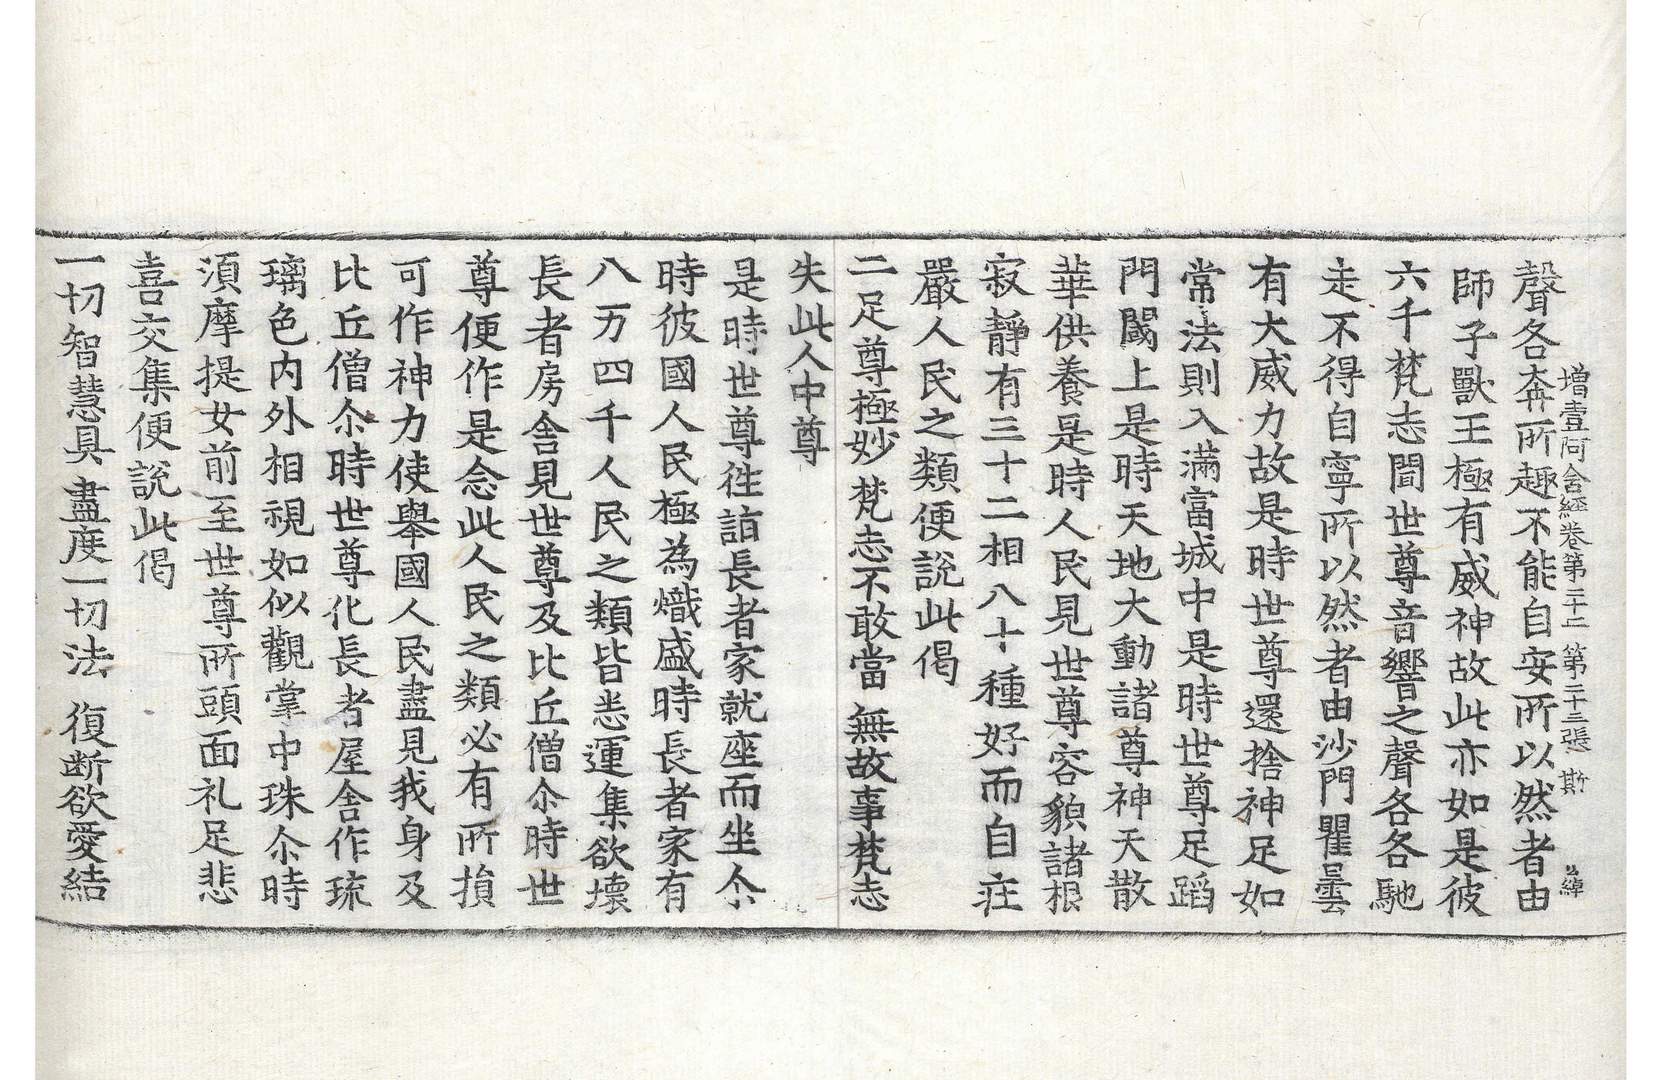 增壹阿含經卷第二十二 第二十三張 斯
聲各奔所趣不能自安所以然者由
師子獸王極有威神故此亦如是彼
六千梵志聞世尊音響之聲各各馳
走不得自寧所以然者由沙門瞿曇
有大威力故是時世尊還捨神足如
常法則入滿富城中是時世尊足蹈
門閾上是時天地大動諸尊神天散
華供養是時人民見世尊容貌諸根
寂靜有三十二相八十種好而自莊
嚴人民之類便說此偈
二足尊極妙 梵志不敢當 無故事梵志
失此人中尊
是時世尊徃詣長者家就座而坐尒
時彼國人民極為熾盛時長者家有
八万四千人民之類皆悉運集欲壞
長者房舍見世尊及比丘僧尒時世
尊便作是念此人民之類必有所損
可作神力使舉國人民盡見我身及
比丘僧尒時世尊化長者屋舍作琉
璃色內外相視如似觀掌中珠尒時
須摩提女前至世尊所頭面礼足悲
喜交集便說此偈
一切智慧具 盡度一切法 復断欲愛結